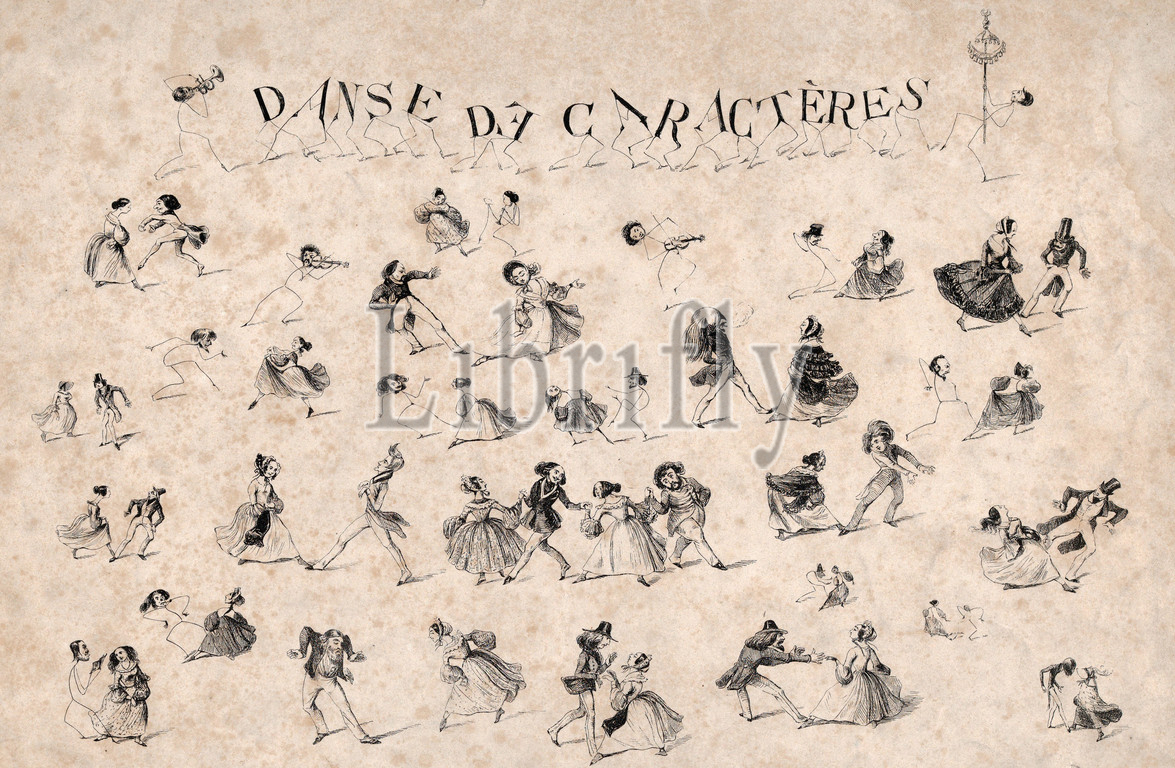 DANSE DE CARACTÈRES
Librifly